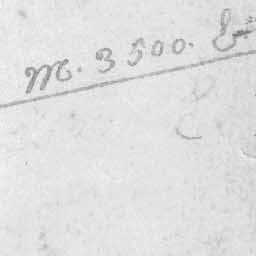 M. 3500. &